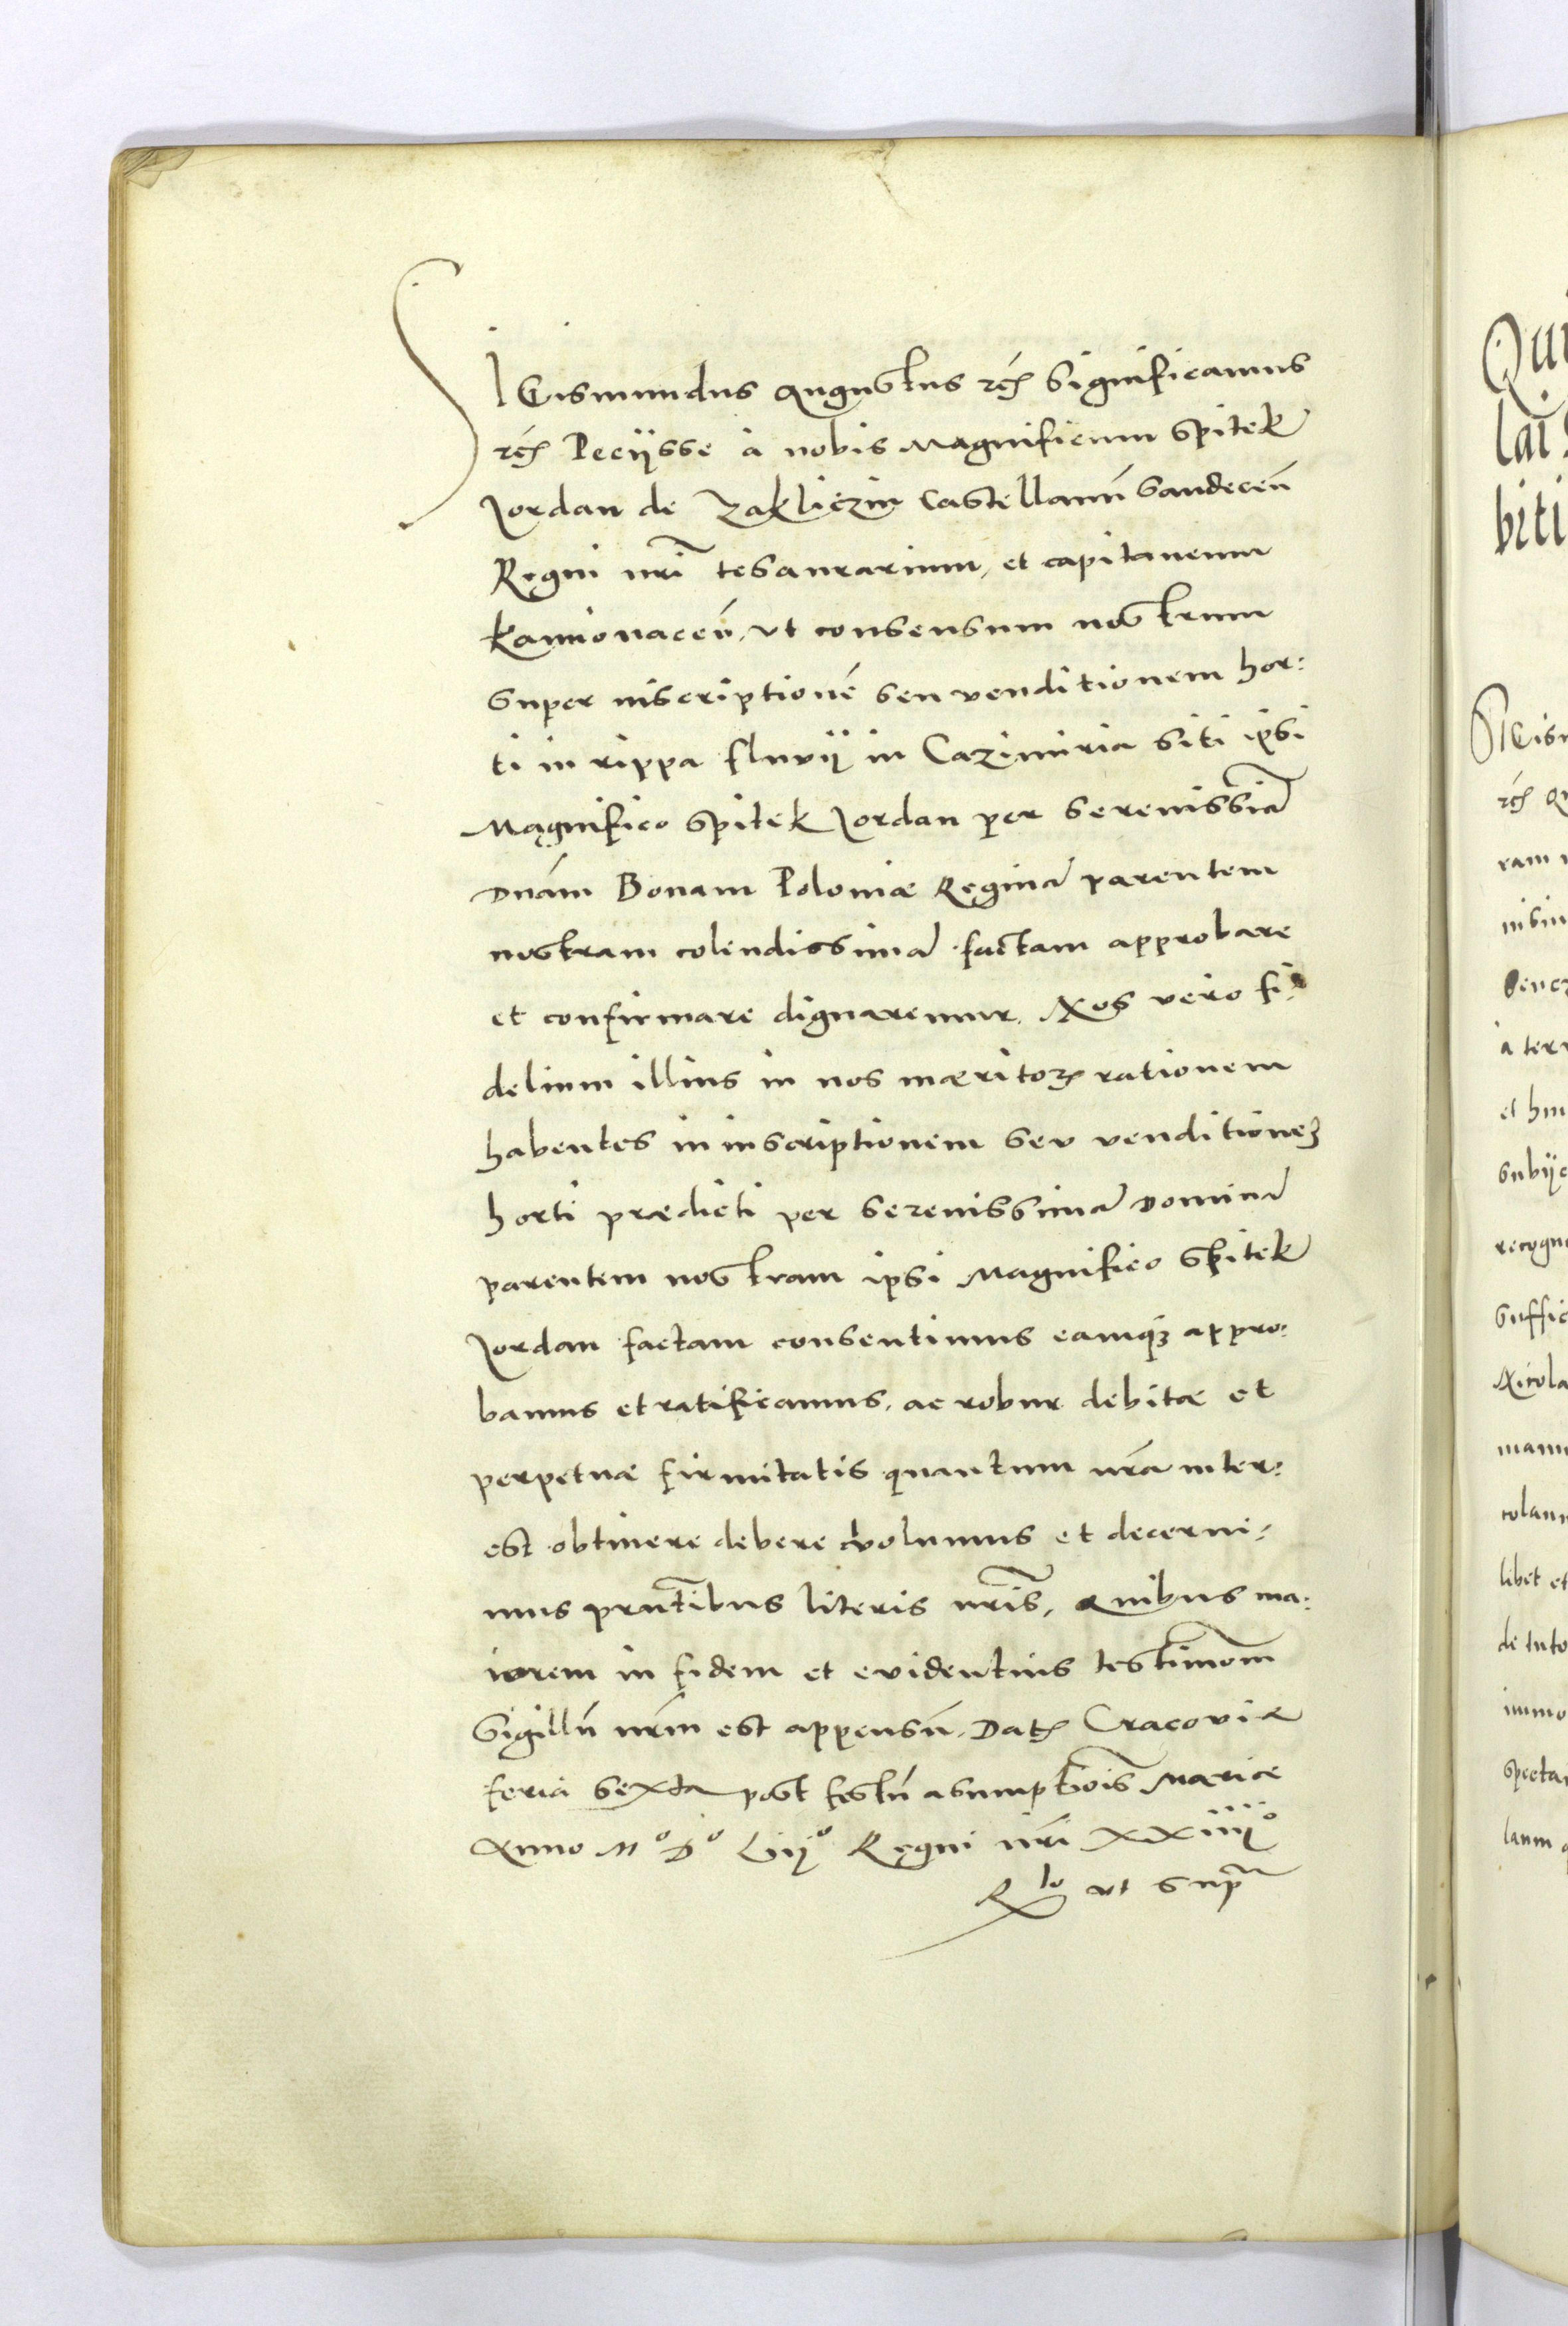 SIGismundus Augustus rc̄ significamus
rc̄ Peciisse à nobis Magnificum Spitek
Jordan de Zakliczin Castellanū Sandeceñ
Regni nrī tesaurarium, et capitaneum
Kamionaceñ, ut consensum nostrum
super inscriptionē seu venditionem hor:
ti in rippa fluvij in Cazimiria siti ipsi
Magnifico Spitek Jordan per serenissīā
Dnām Bonam Poloniæ Reginā parentem
nostram colendissimā factam approbare
et confirmare dignaremur. Nos vero fi:
delium illius in nos mæritorꝫ rationem
habentes in inscriptionem seu venditioneꝫ
horti prædicti per serenissimā dominā
parentem nostram ipsi Magnifico Spitek
Jordan factam consentimus eamqꝫ appro:
bamus et ratificamus, ac robur debitæ et
perpetuæ firmitatis quantum nrā inter:
est obtinere debere volumus et decerni:
mus prntībus literis nrīs, Quibus ma:
iorem in fidem et evidentius testimom̄
Sigillū nrm̄ est appensū. Datꝫ Cracoviæ
feria sexta post festū asumptiois̄ Mariæ
Anno Mº Dº Liijº Regni nrī xxiiijº
Rlo ut supra
Qui
lai
biti
rc̄
ram
à ter
et
libet et
de tuto